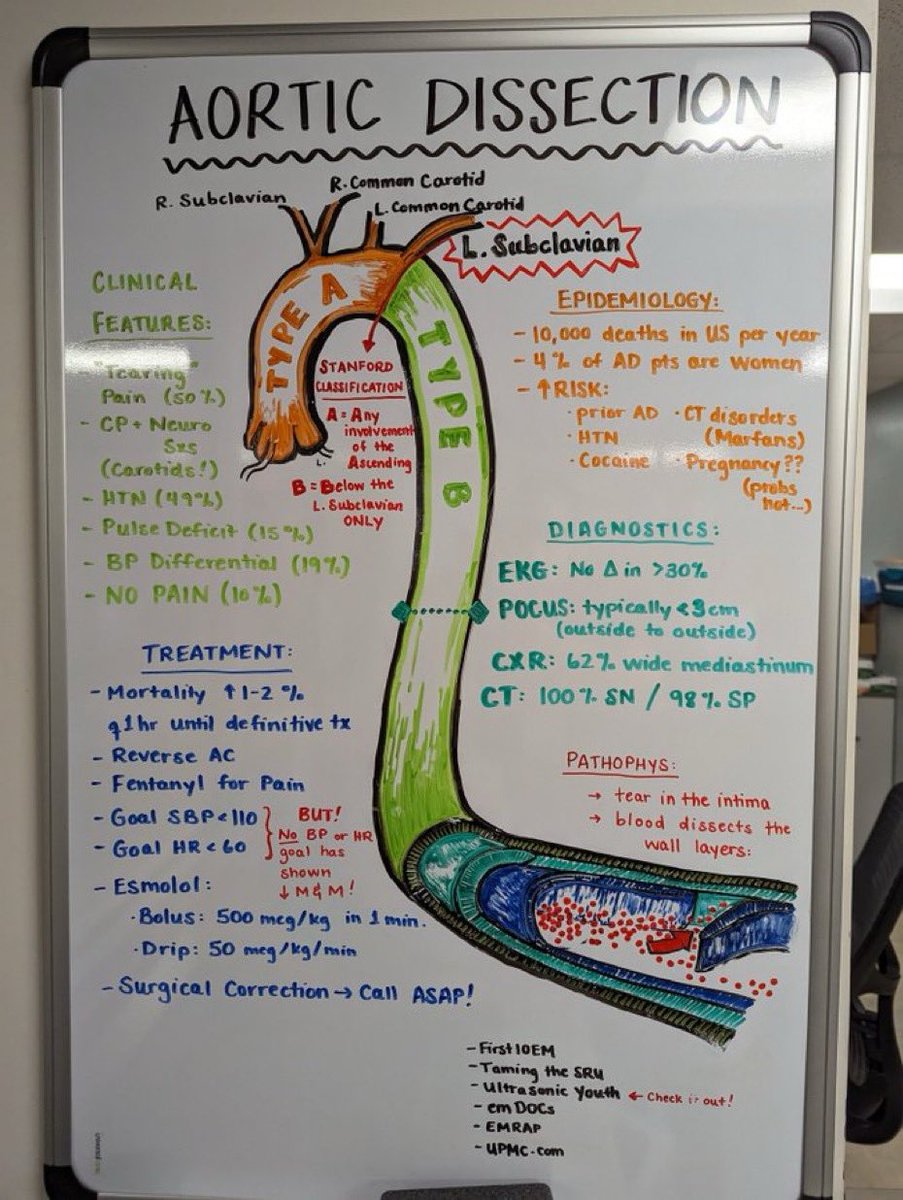 AORTIC DISSECTION
R. Subclavian
R. Common Carotid
L. Common Carotid
L. Subclavian
TYPE A
TYPE B
STANFORD
CLASSIFICATION
A = Any
involvement
of the
Ascending
B = Below the
L. Subclavian
ONLY
CLINICAL
FEATURES:
"Tearing"
Pain (50%)
- CP + Neuro
Sxs
(Carotids!)
- HTN (49%)
- Pulse Deficit (15%)
- BP Differential (19%)
- NO PAIN (10%)
EPIDEMIOLOGY:
- 10,000 deaths in US per year
- 4% of AD pts are women
- ↑RISK:
· prior AD · CT disorders
· HTN (Marfans)
· Cocaine · Pregnancy??
(probs
not...)
DIAGNOSTICS:
EKG: No Δ in >30%
POCUS: typically <3cm
(outside to outside)
CXR: 62% wide mediastinum
CT: 100% SN / 98% SP
TREATMENT:
- Mortality ↑ 1-2%
q1hr until definitive tx
- Reverse AC
- Fentanyl for Pain
- Goal SBP < 110
- Goal HR < 60
BUT!
No BP or HR
goal has
shown
↓ M & M!
- Esmolol:
· Bolus: 500 mcg/kg in 1 min.
· Drip: 50 mcg/kg/min
- Surgical Correction → Call ASAP!
PATHOPHYS:
→ tear in the intima
→ blood dissects the
wall layers:
- First10EM
- Taming the SRU
- Ultrasonic Youth ← Check it out!
- emDOCs
- EMRAP
- UPMC.com